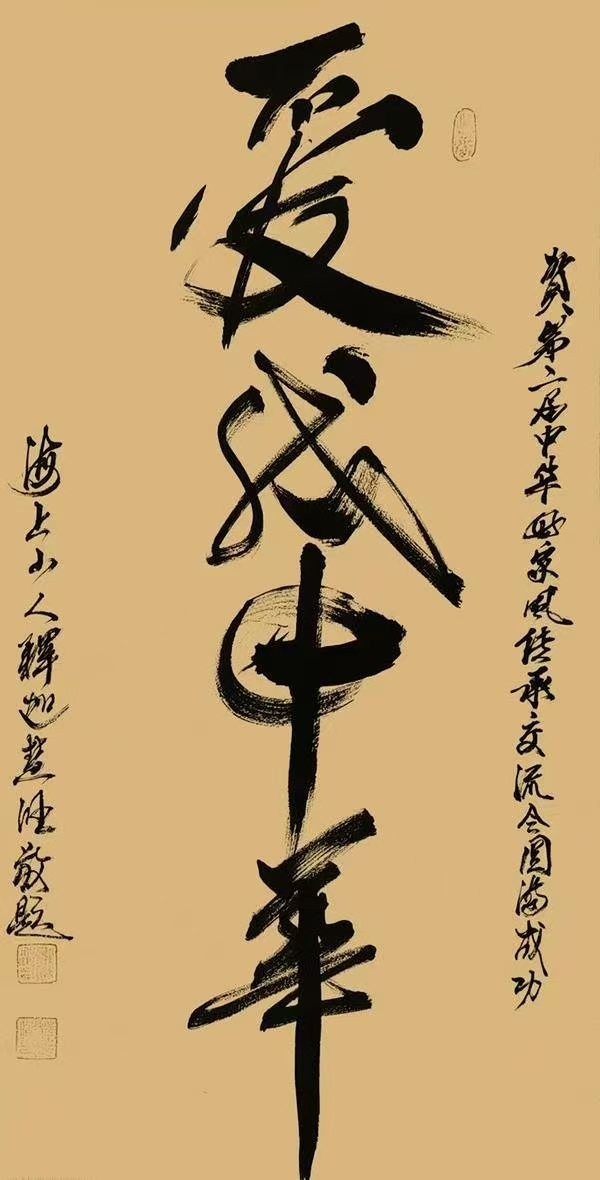 贺第二届中华好家风传承交流会圆满成功
爱我中华
海上小人释迦慧注敬题